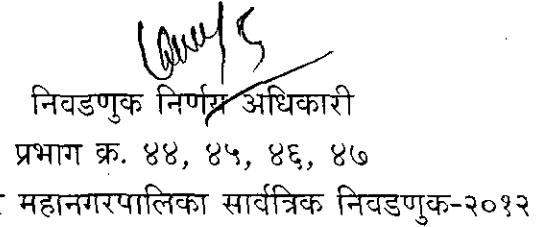 निवडणुक निर्णय अधिकारी
प्रभाग क्र. ४४, ४५, ४६, ४७
महानगरपालिका सार्वत्रिक निवडणुक-२०१२